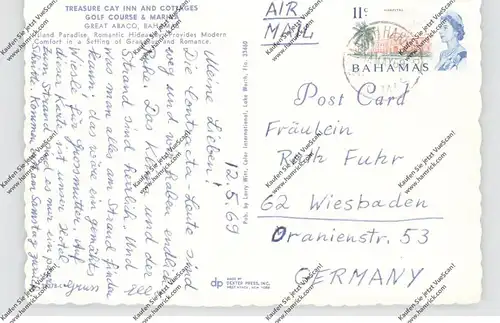 TREASURE CAY INN AND COTTAGES
GOLF COURSE & MARINA
GREAT ABACO, BAHAMAS
Island Paradise. Romantic Hideaway. Provides Modern
Comfort in a Setting of and Romance.
AIR
MAIL
11c
BAHAMAS
Post Card
Fräulein
Ruth Fuhr
62 Wiesbaden
Oranienstr. 53
GERMANY
12.5.69
Meine Lieben!
Die Contracta-Leute sind
weg und wir haben endlich
Ruhe. Das Klima und der
Strand sind herrlich. Und
was man alles am Strand finden
kann, das wäre ein gemähtes
Wiesle für Grossmutter. Auf
dieser Karte ist unser Hotel
zum Strand sind es nur ein paar
Schritt. Kommen am Samstag zurück
Gruss
Pub. by Larry Witt, Color International, Lake Worth, Fla. 33460
dp
MADE BY
DEXTER PRESS, INC.
WEST NYACK, NEW YORK
Kaufen Sie jetzt VueScan!
www.hamrick.com